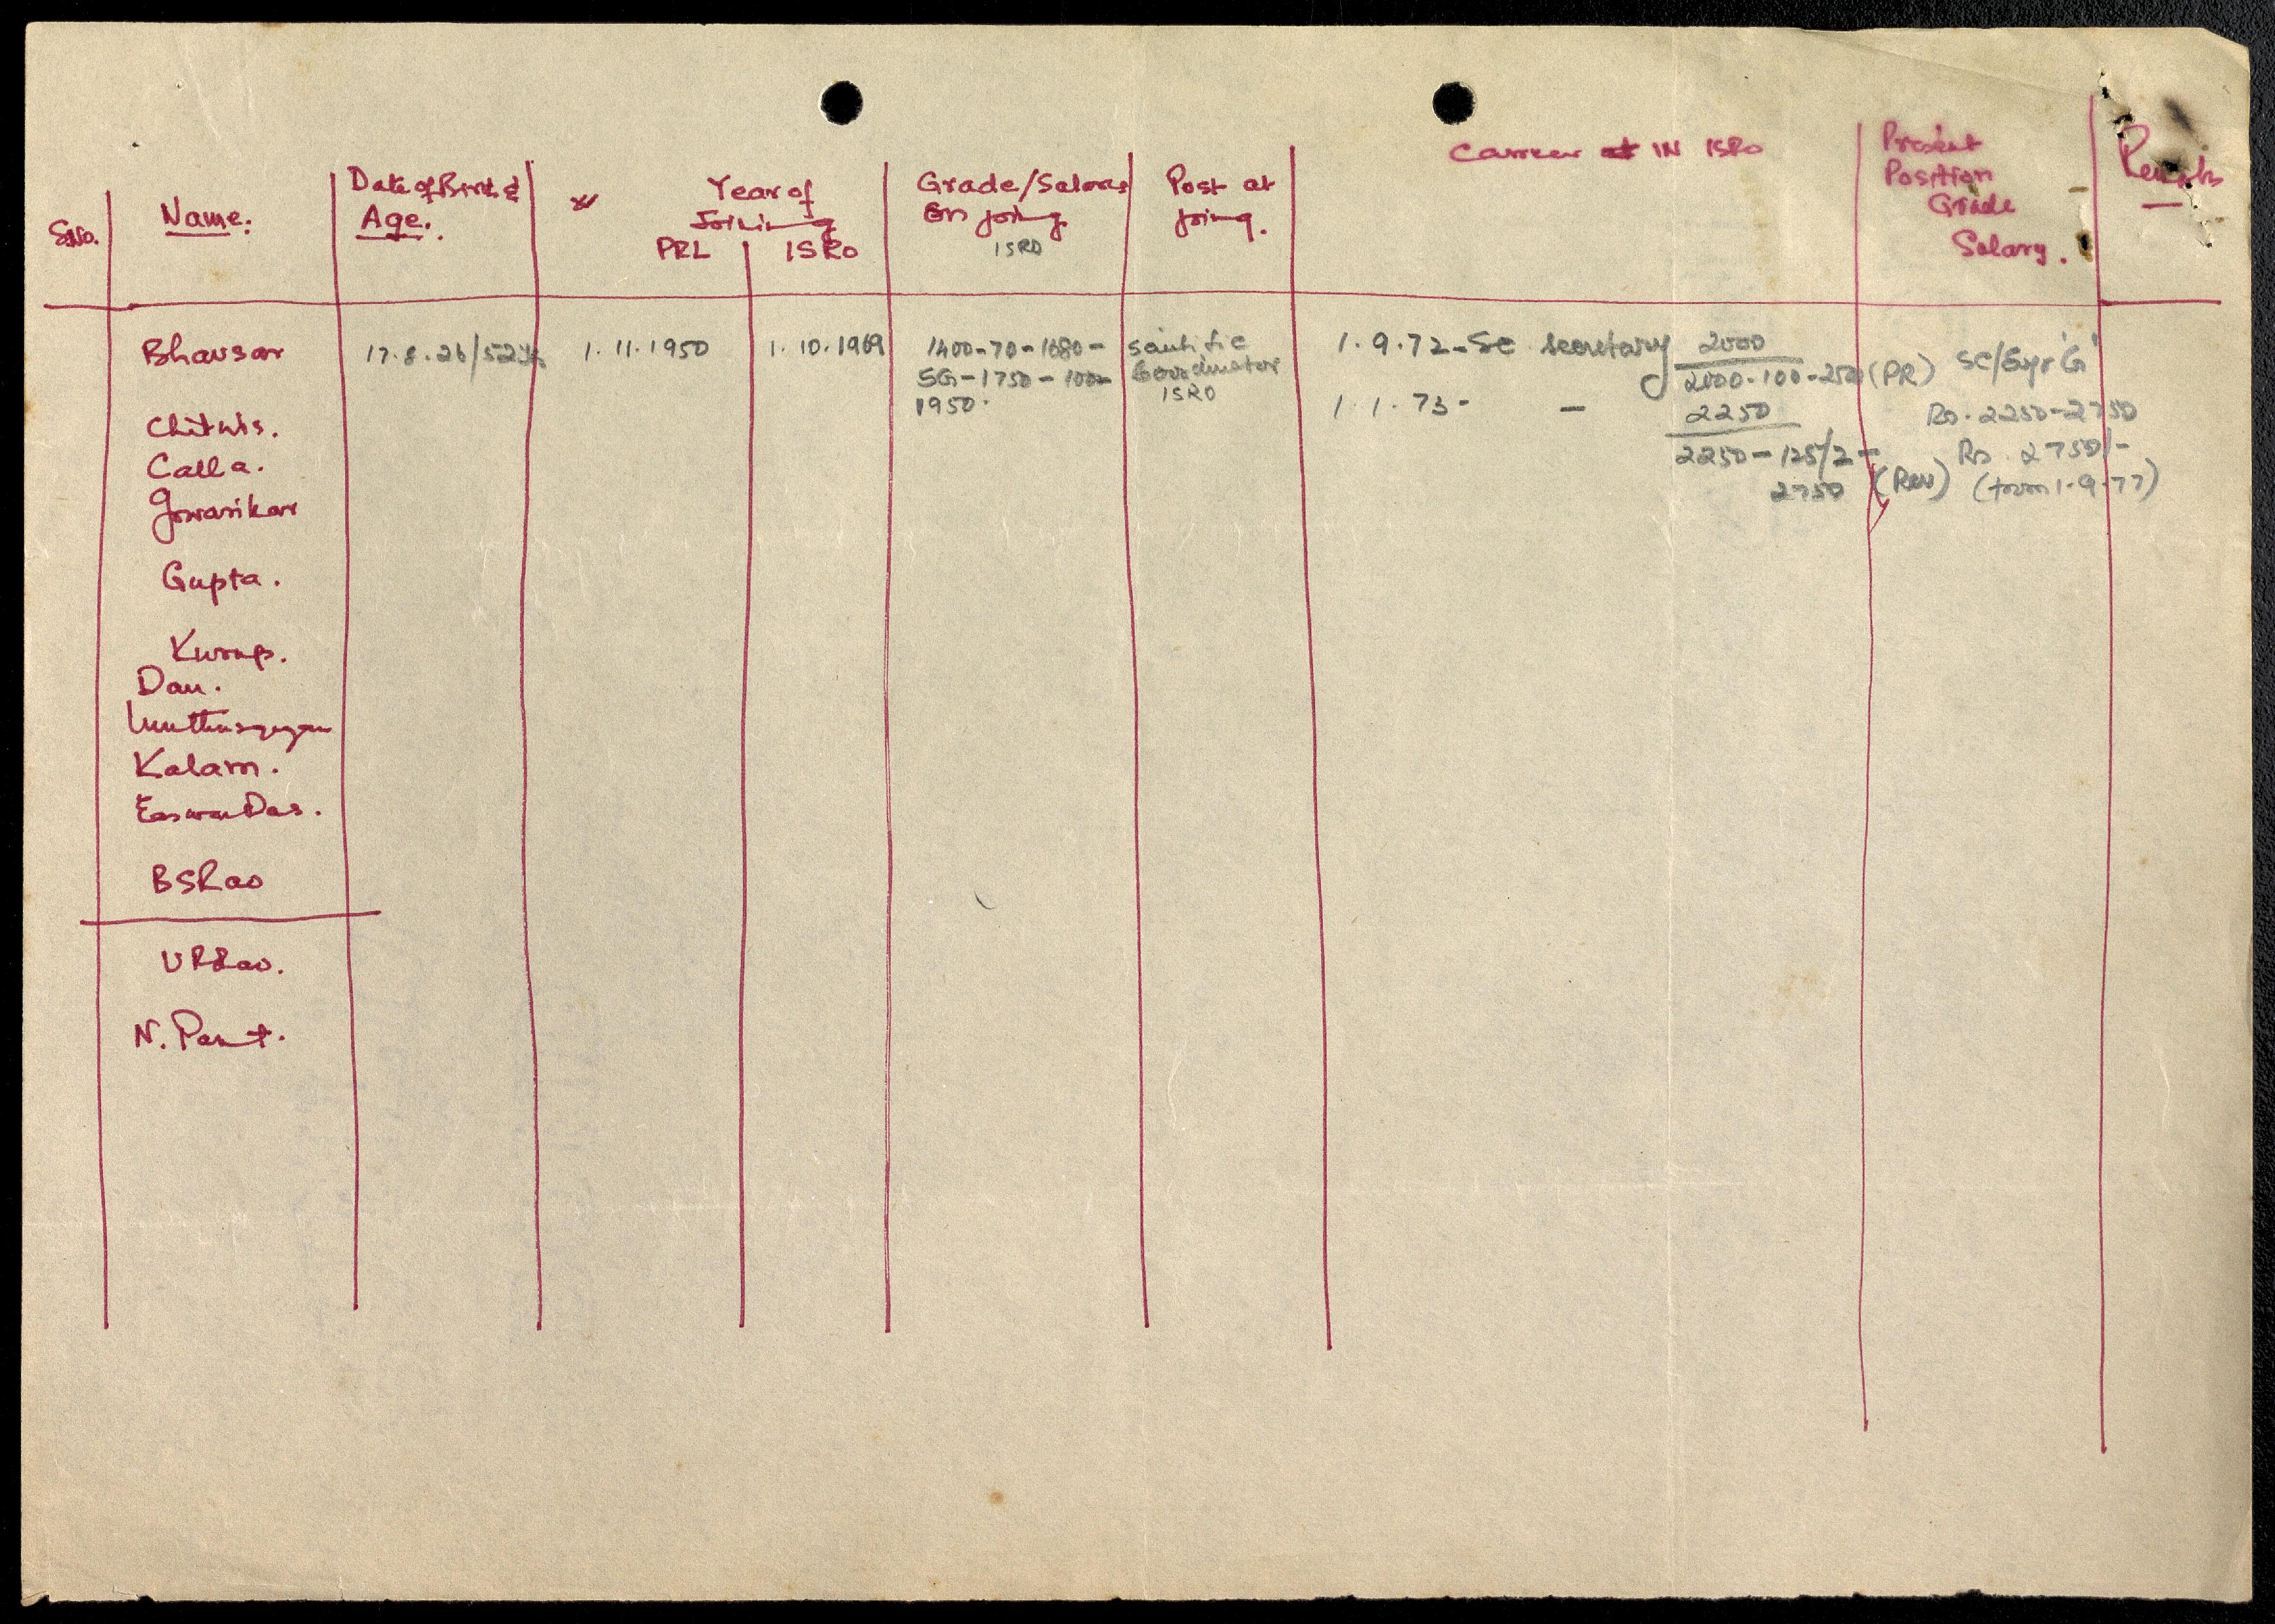 S.No.
Name.
Date of Birth &
Age.
Year of
Joining
PRL ISRO
Grade/Salary
on joing
ISRO
Post at
joing.
Carreer at IN ISRO
Present
Position
Grade
Salary.
Remarks
Bhavsar 17.8.26/52 1.11.1950 1.10.1969
1400-70-1680-
SG-1750-100-
1950.
Scintific
Coordinator
ISRO
1.9.72-Sc Secretary 2000
2000-100-2500 (PR)
1.1.73- — 2250
2250-125/2-
2750 (Rev)
SC/Engr 'G'
Rs. 2250-2750
Rs. 2750/-
(from 1.9.77)
Chitnis.
Calla.
Gowarikar
Gupta.
Kurup.
Dau.
Muthunayagam
Kalam.
EaswarDas.
BSRao
URRao.
N. Pant.